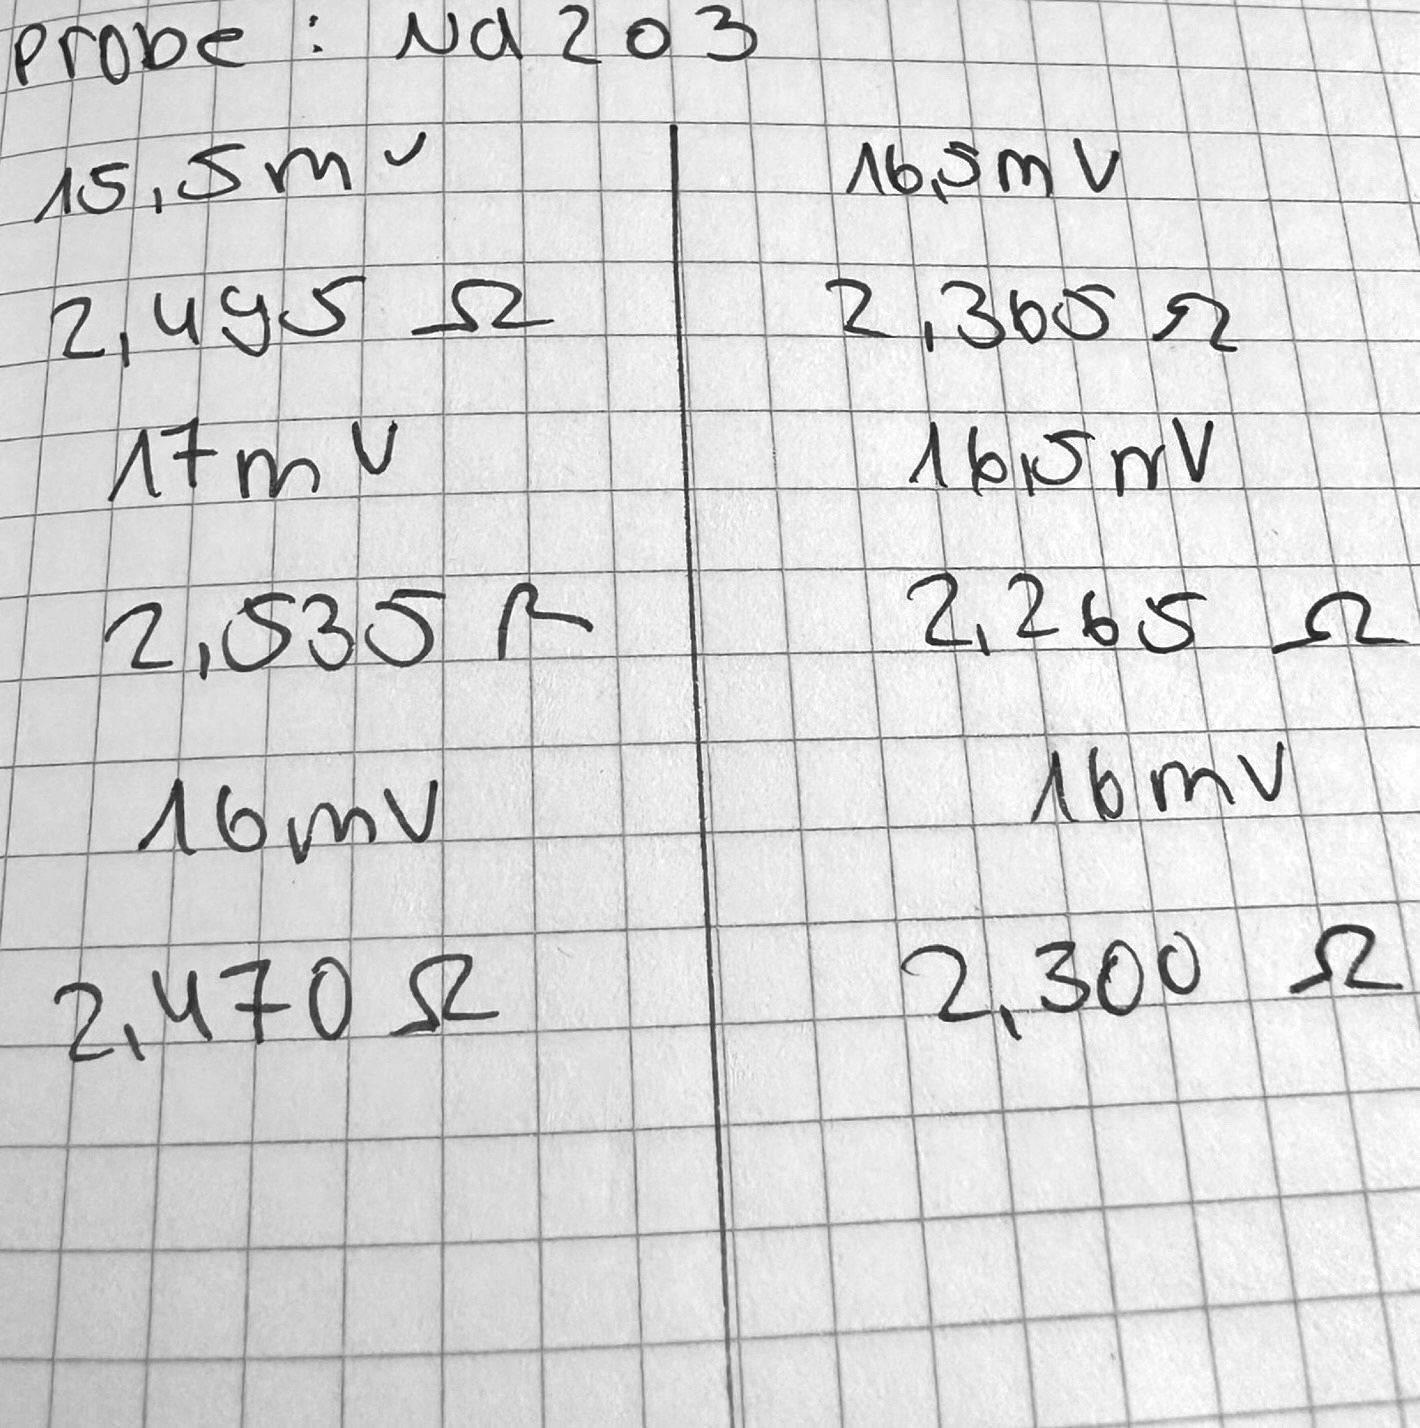 Probe: Nd2O3
15,5mV
2,495 Ω
17mV
2,535 Ω
16mV
2,470 Ω
16,5mV
2,365 Ω
16,5mV
2,265 Ω
16mV
2,300 Ω